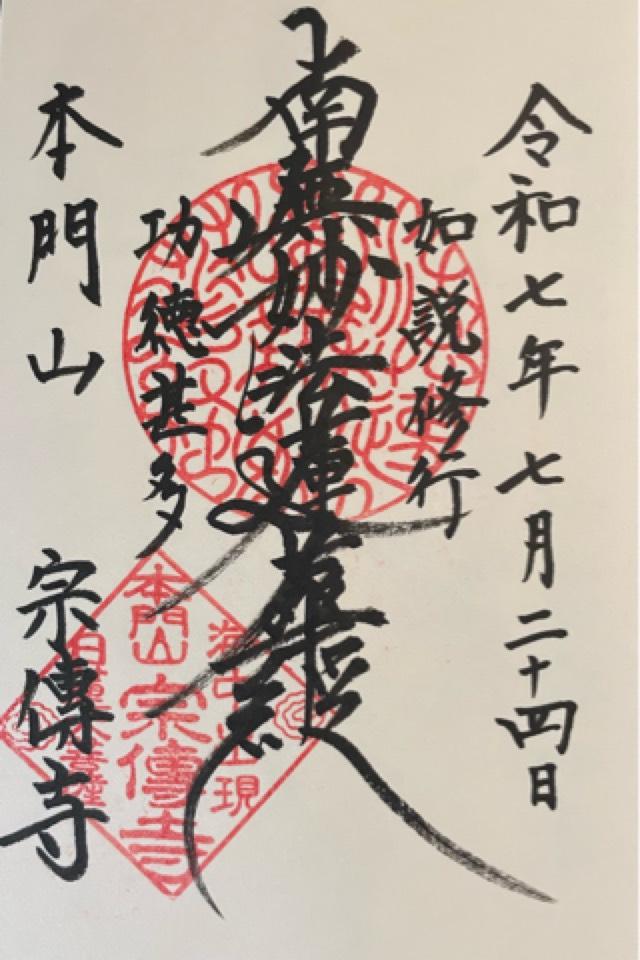 令和七年七月二十四日
如説修行
南無妙法蓮華経
功徳甚多
本門山 宗傳寺
本門山
宗傳寺